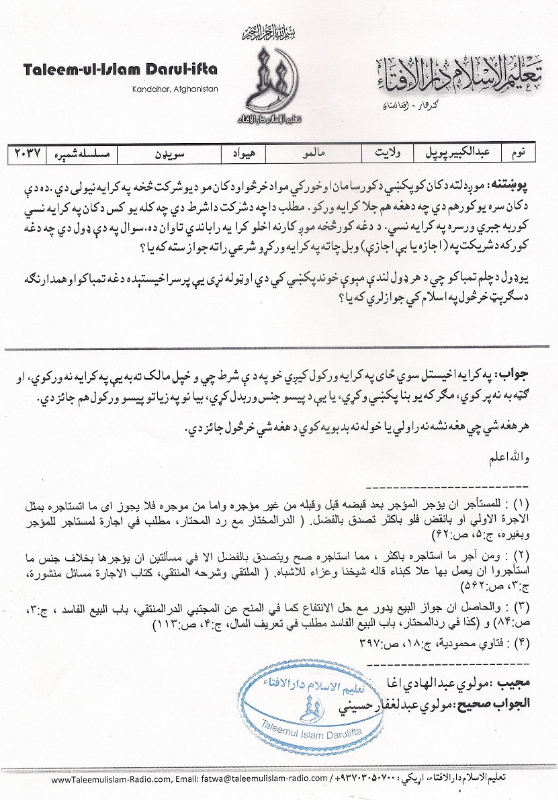 بسم الله الرحمن الرحیم
Taleem-ul-Islam Darul-ifta
Kandahar, Afghanistan
تعلیم الاسلام دارالإفتاء
کندهار - افغانستان
تعلیم الاسلام دارالإفتاء
نوم عبدالکبیر پوپل ولایت مالمو هیواد سویډن مسلسله شمېره ۲۰۳۷
پوښتنه: موږ دلته دکان کو پکښي دکور سامان او خورکي مواد خرڅو او دکان مو د یو شرکت څخه په کرایه نیولی دي. ده دې
دکان سره یو کور هم دي چه دهغه هم جلا کرایه ورکو. مطلب دا چه د شرکت دا شرط دي چه کله یو کس دکان په کرایه نسي
کور به جبري ورسره په کرایه نسي. د دغه کور څخه موږ کار نه اخلو کرا یه را باندي تاوان ده. سوال په دې ډول دي چه دغه
کور که د شریکت په (اجازه یا بې اجازې) وبل چاته په کرایه ورکړو شرعي را ته جواز سته که یا؟
یو ډول د چلم تمباکو چي د هر ډول لندې مېوې خوند پکښي کي دي او ټوله نړۍ یې پر سر اخیستېده دغه تمباکو او همدارنګه
د سګرېټ خرڅول په اسلام کي جواز لري که یا؟
جواب: په کرایه اخیستل سوي ځای په کرایه ورکول کیږي خو په دې شرط چي و خپل مالک ته به یې په کرایه نه ورکوي، او
ګټه به نه پر کوي، مګر که یو بنا پکښي وکړي، یا یې د پیسو جنس ور بدل کړي، بیا نو په زیاتو پیسو ورکول هم جائز دي.
هر هغه شي چي هغه نشه نه راولي یا خوله نه بدبویه کوي د هغه شي خرڅول جائز دي.
والله اعلم
(۱) : للمستأجر ان یؤجر المؤجر بعد قبضه قبل وقبله من غیر مؤجره واما من موجره فلا یجوز ای ما استاجره بمثل
الاجرة الاولي او بانقض فلو باکثر تصدق بالفضل. ( الدرالمختار مع رد المحتار، مطلب في اجارة لمستاجر للمؤجر
وبغیره، ج:۵، ص:۶۲)
(۲) : ومن آجر ما استاجره باکثر ، مما استاجره صح ویتصدق بالفضل الا في مسألتین ان یؤجرها بخلاف جنس ما
استأجروا ان یعمل بها علا کبناء قاله شیخنا وعزاء للاشباه. ( الملتقي وشرحه المنتقي، کتاب الاجارة مسائل منشورة،
ج:۳، ص:۵۶۲)
(۳) : والحاصل ان جواز البیع یدور مع حل الانتفاع کما في المنح عن المجتبي الدرالمنتقي، باب البیع الفاسد ، ج:۳،
ص:۸۴) و (کذا في ردالمحتار، باب البیع الفاسد مطلب في تعریف المال، ج:۴، ص:۱۱۳)
(۴) : فتاوي محمودیة، ج:۱۸، ص:۳۹۷
مجیب :مولوي عبدالهادي اغا
الجواب صحیح:مولوي عبدلغفار حسیني
تعلیم الاسلام دارالإفتاء
Taleemul Islam Darulifta
تعلیم الاسلام دارالافتاء، اړیکي : ‎+۹۳۷۰۳۰۵۰۷۰۰ / www.TaleemulIslam-Radio.com, Email: fatwa@taleemulislam-radio.com